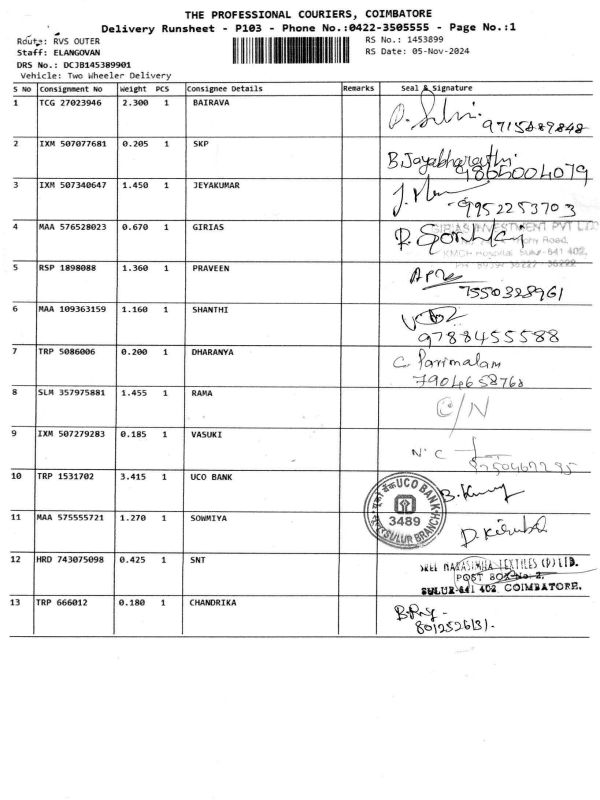 THE PROFESSIONAL COURIERS, COIMBATORE
Delivery Runsheet - P103 - Phone No.:0422-3505555 - Page No.:1
Route: RVS OUTER
RS No.: 1453899
Staff: ELANGOVAN
RS Date: 05-Nov-2024
DRS No.: DCJB145389901
Vehicle: Two Wheeler Delivery
S No Consignment No Weight PCS Consignee Details Remarks Seal & Signature
1 TCG 27023946 2.300 1 BAIRAVA
9715889848
2 IXM 507077681 0.205 1 SKP B. Jayabharathi
9865004079
3 IXM 507340647 1.450 1 JEYAKUMAR
9952253703
4 MAA 576528023 0.670 1 GIRIAS GIRIAS INVESTMENT PVT LTD
KMCH Hospital Sulur-641 402,
5 RSP 1898088 1.360 1 PRAVEEN
7550328961
6 MAA 109363159 1.160 1 SHANTHI
9788455588
7 TRP 5086006 0.200 1 DHARANYA C. Parimalam
7904658768
8 SLM 357975881 1.455 1 RAMA C/N
9 IXM 507279283 0.185 1 VASUKI N. C
10 TRP 1531702 3.415 1 UCO BANK
यूको बैंक UCO BANK
3489
SULUR BRANCH
11 MAA 575555721 1.270 1 SOWMIYA
12 HRD 743075098 0.425 1 SNT SREE NARASIMHA TEXTILES (P) LTD.
POST BOX No. 2,
SULUR-641 402 COIMBATORE.
13 TRP 666012 0.180 1 CHANDRIKA